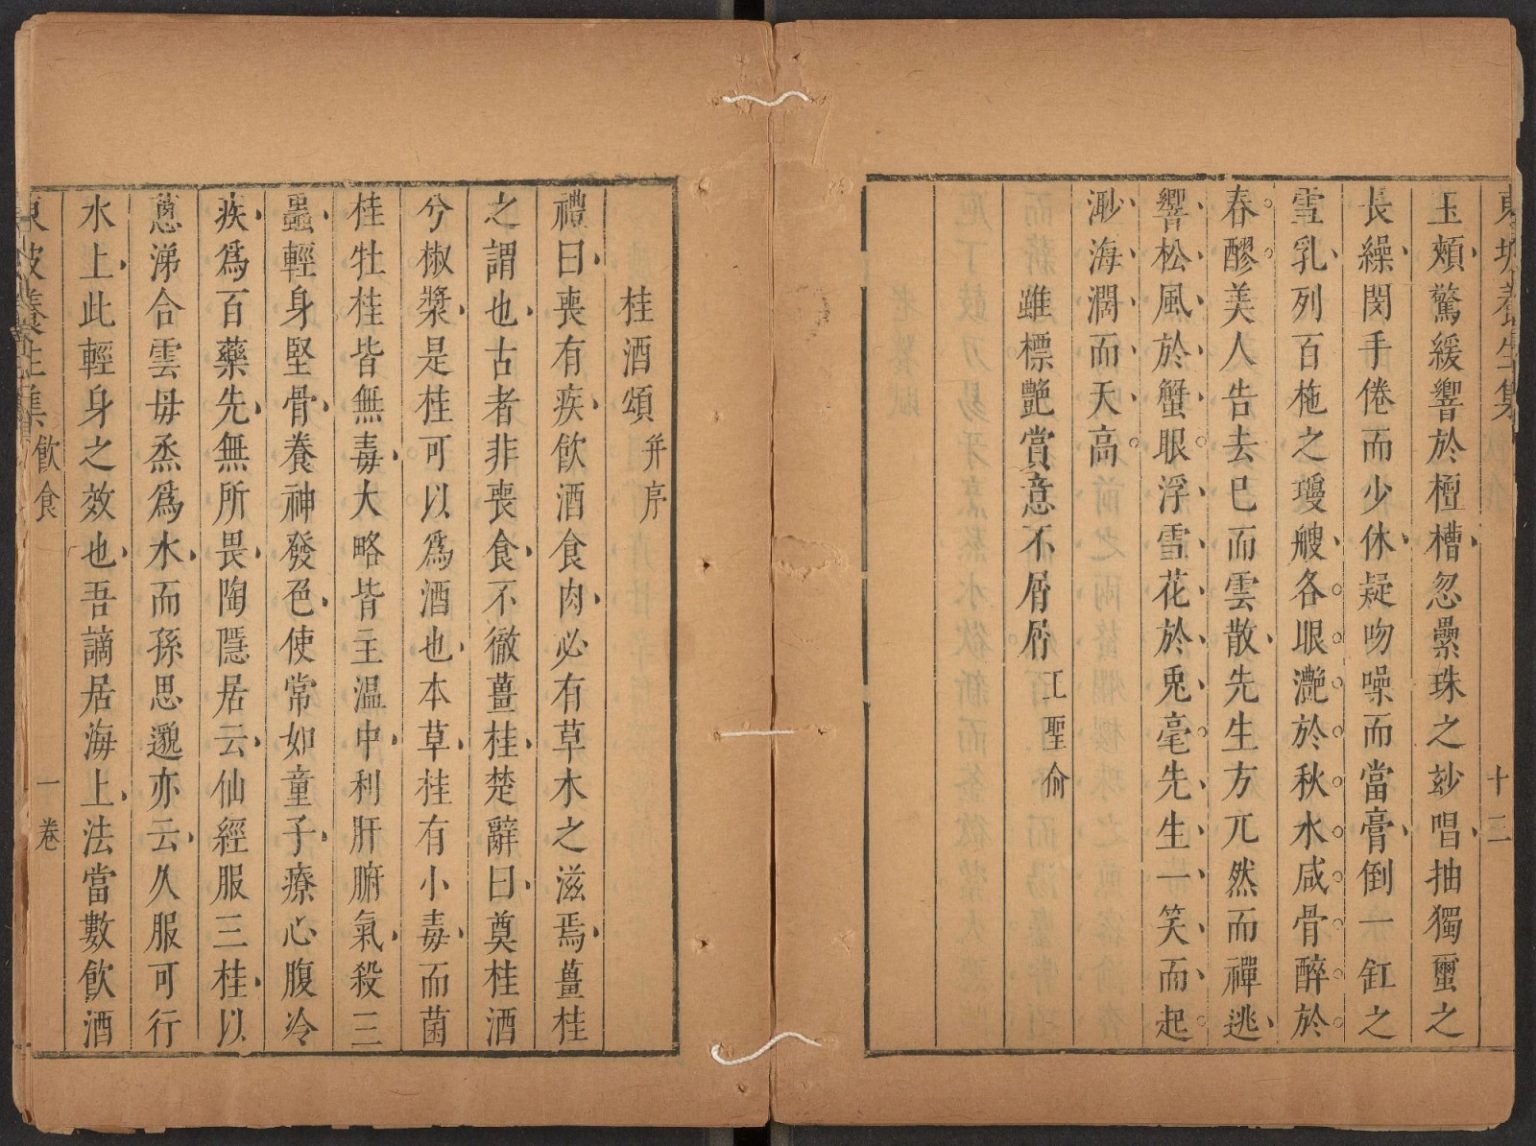 東坡養生集
十三
玉頰驚緩響於檀槽忽纍珠之玅唱抽獨蠒之
長繰閔手倦而少休疑吻噪而當膏倒一缸之
雪乳列百柂之瓊艘各眼灔於秋水咸骨醉於
春醪美人告去巳而雲散先生方兀然而禪逃
響松風於蟹眼浮雪花於兎毫先生一笑而起
渺海濶而天高
雖標艶賞意不屑屑 王聖俞
桂酒頌 并序
禮曰喪有疾飲酒食肉必有草木之滋焉薑桂
之謂也古者非喪食不徹薑桂楚辭曰奠桂酒
兮椒漿是桂可以爲酒也本草桂有小毒而菌
桂牡桂皆無毒大略皆主溫中利肝腑氣殺三
蟲輕身堅骨養神發色使常如童子療心腹冷
疾爲百藥先無所畏陶隱居云仙經服三桂以
蔥涕合雲母烝爲水而孫思邈亦云久服可行
水上此輕身之效也吾謫居海上法當數飲酒
東坡養生集 飲食
一卷